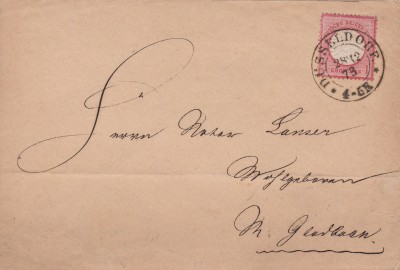 DÜSSELDORF
28 12
73
4-5N
Herrn Notar Lanser
Wohlgeboren
M. Gladbach